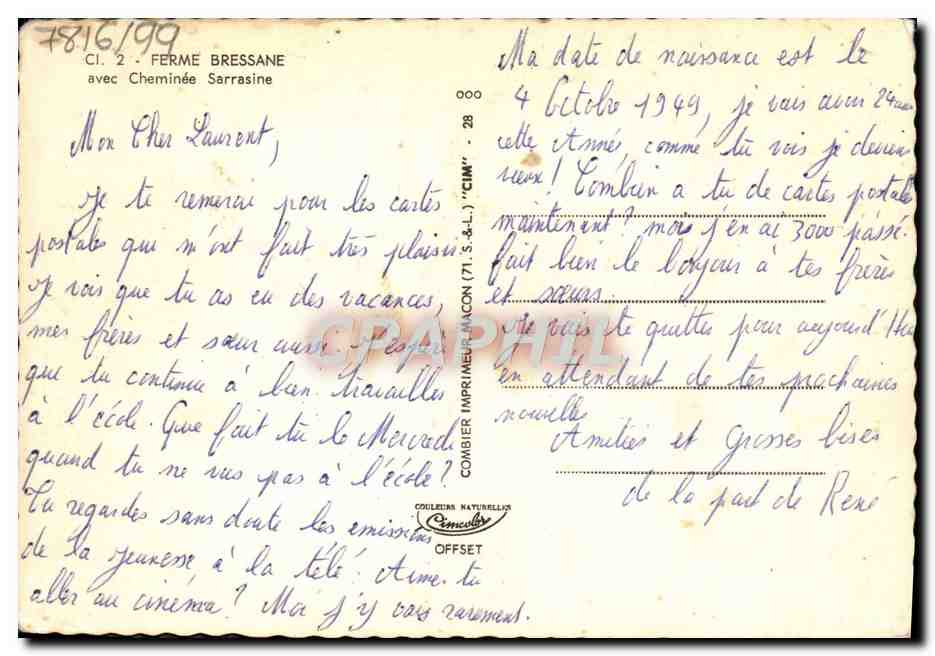 7816/99
Cl. 2 - FERME BRESSANE
avec Cheminée Sarrasine
Mon Cher Laurent,
Je te remercie pour les cartes
postales que m'ont fait très plaisir.
Je vois que tu as eu des vacances,
mes frères et sœur aussi. J'espère
que tu continu à bien travailles
à l'école. Que fait tu le Mercredi
quand tu ne vas pas à l'école?
Tu regardes sans doute les émissions
de la jeunesse à la télé. Aime-tu
aller au cinéma? Moi j'y vais rarement.
COMBIER IMPRIMEUR MACON (71. S.-&-L.) "CIM" - 28
ooo
COULEURS NATURELLES
Cimcolor
OFFSET
Ma date de naissance est le
4 Octobre 1949, je vais avoir 24 ans
cette Année, comme tu vois je deviens
vieux! Combien a tu de cartes postales
maintenant? mois j'en ai 3000 passé.
fait bien le bonjour à tes frères
et sœurs.
Je vais te quitter pour aujourd'Hui
en attendant de tes prochaines
nouvelles
Amitiés et Grosses bises
de la part de René
CPAPHIL